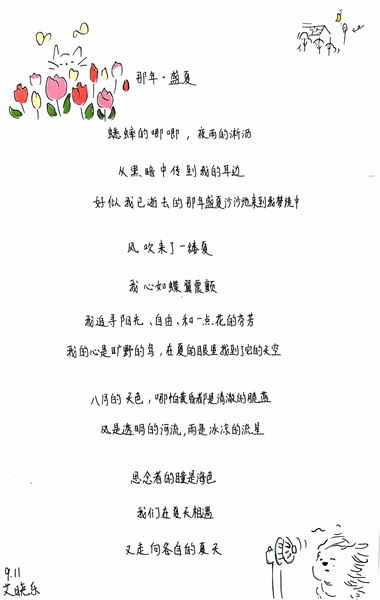 那年·盛夏
蟋蟀的唧唧，夜雨的淅沥
从黑暗中传到我的耳边
好似我已逝去的那年盛夏沙沙地来到我梦境中
风吹来了一缕夏
我心如蝶翼震颤
我追寻阳光、自由、和一点花的芬芳
我的心是旷野的鸟，在夏的眼里找到了它的天空
八月的天色，哪怕黄昏都是清澈的脆蓝
风是透明的河流，雨是冰冻的流星
思念者的瞳是海色
我们在夏天相遇
又走向各自的夏天
9.11
艾晓乐